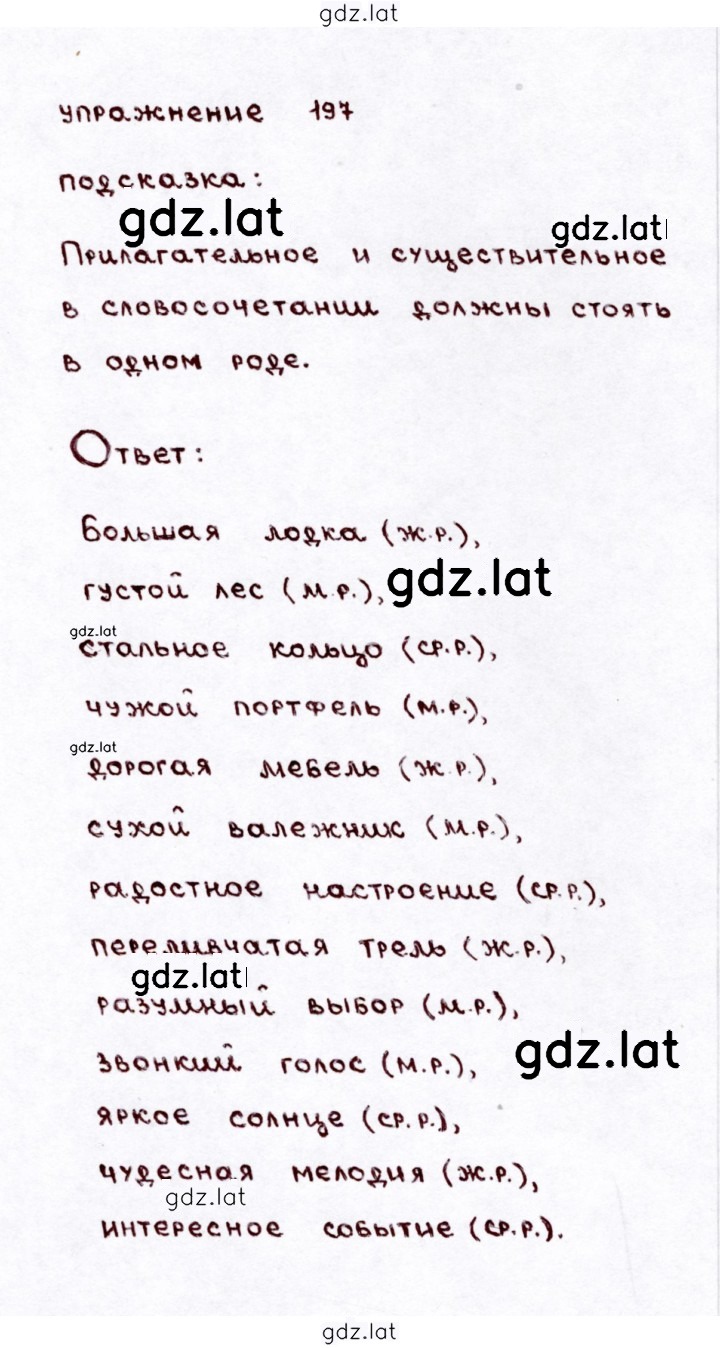 gdz.lat
упражнение 197
подсказка:
gdz.lat gdz.lat
Прилагательное и существительное
в словосочетании должны стоять
в одном роде.
Ответ:
большая лодка (ж.р.),
густой лес (м.р.), gdz.lat
gdz.lat
стальное кольцо (ср.р.),
чужой портфель (м.р.),
gdz.lat
дорогая мебель (ж.р.),
сухой валежник (м.р.),
радостное настроение (ср.р.),
переливчатая трель (ж.р.),
gdz.lat
разумный выбор (м.р.),
звонкий голос (м.р.), gdz.lat
яркое солнце (ср.р.),
чудесная мелодия (ж.р.),
gdz.lat
интересное событие (ср.р.).
gdz.lat